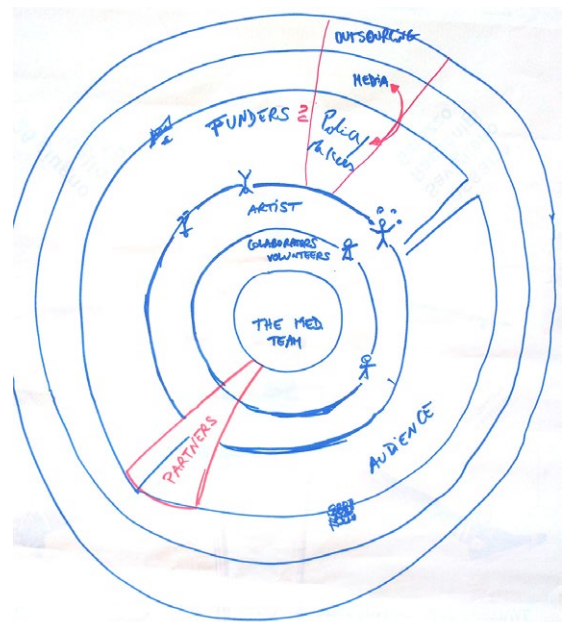 OUTSOURCING
MEDIA
FUNDERS ?
Policy
Makers
ARTIST
COLABORATERS
VOLUNTEERS
THE MED
TEAM
PARTNERS
AUDIENCE